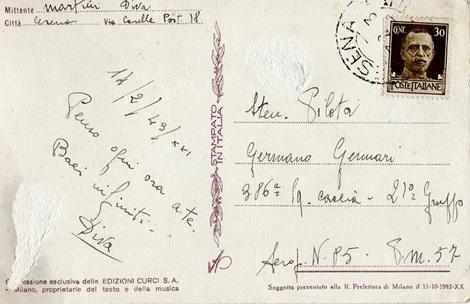 Mittente Martini Diva
Città Cesena Via Caselle Post. 18
17/2/43/XXI
Penso ogni ora a te.
Baci infiniti.-
Diva
STAMPATO
IN ITALIA
CENT. 30
POSTE ITALIANE
SENA
Pilota
Germano Gennari
386a Sq. caccia - 21o Gruppo
Aerop. N. 85 - P.M. 57
esclusiva delle EDIZIONI CURCI S. A.
- Milano, proprietarie del testo e della musica
Soggetto presentato alla R. Prefettura di Milano il 11-10-1942-XX